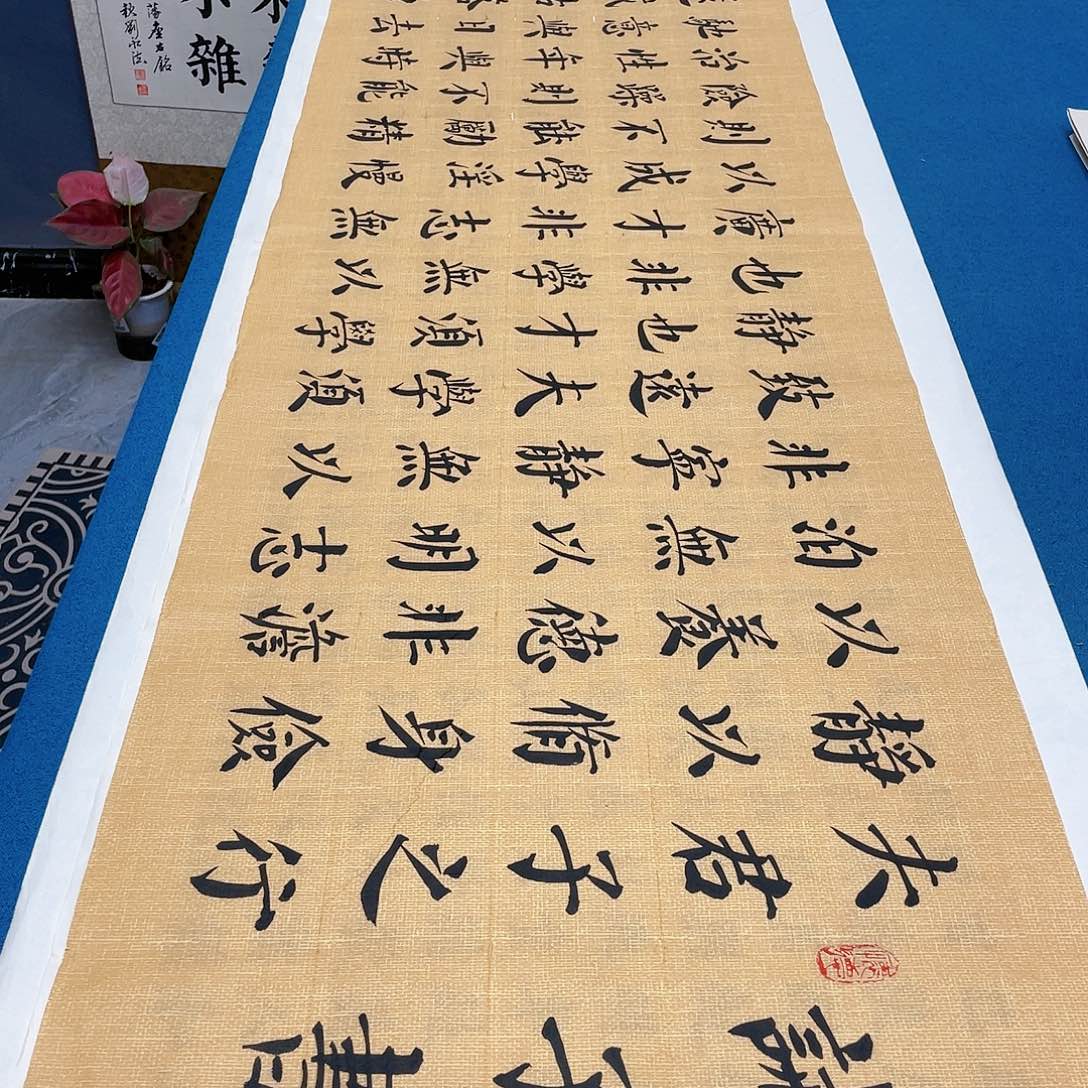 誡子書
夫君子之行
静以脩身儉
以養德非澹
泊無以明志
非寧静無以
致遠夫學須
静也才須學
也非學無以
廣才非志無
以成學淫慢
則不能勵精
險躁則不能
治性年與時
馳意與日去
雜
座右銘